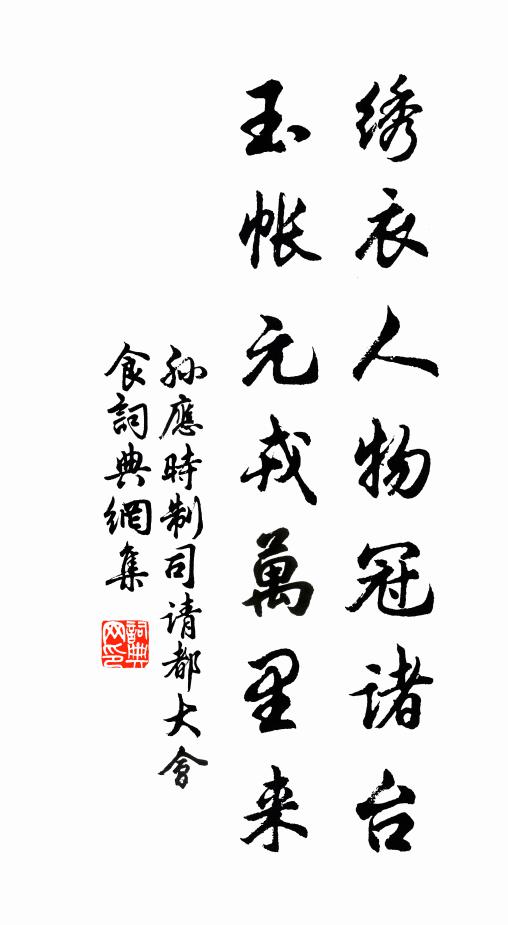 绣衣人物冠诸台
玉帐元戎萬里来
孙應時制司请都大會
食詞典網集
詞典网印